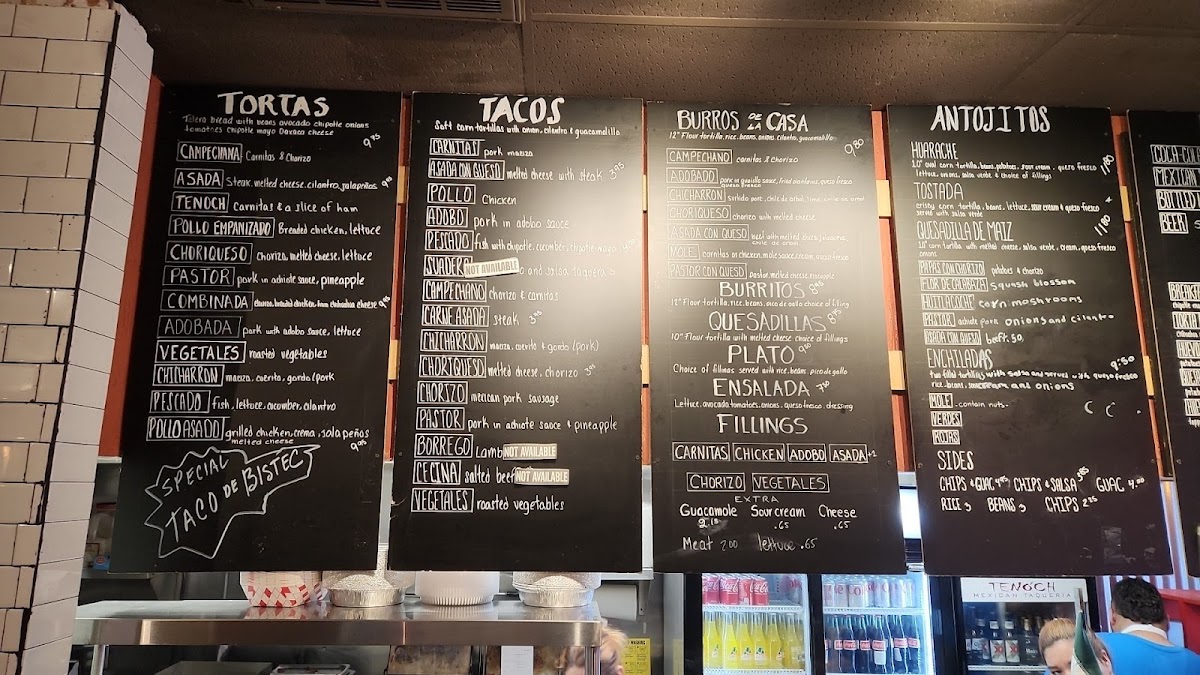 TORTAS
Telera bread with beans avocado chipotle onions
tomatoes chipotle mayo Oaxaca cheese
CAMPECHANA Carnitas & Chorizo
ASADA Steak, melted cheese, cilantro, jalapeños
TENOCH Carnitas & a slice of ham
POLLO EMPANIZADO Breaded chicken, lettuce
CHORIQUESO Chorizo, melted cheese, lettuce
PASTOR pork in achiote sauce, pineapple
COMBINADA
ADOBADA pork with adobo sauce, lettuce
VEGETALES roasted vegetables
CHICHARRON maciza, cuerito, gordo/pork
PESCADO fish, lettuce, cucumber, cilantro
POLLO ASADO grilled chicken, crema, jalapeños
melted cheese
SPECIAL
TACO DE BISTEC
TACOS
Soft corn tortillas with onion, cilantro & guacamolillo
CARNITAS pork maciza
ASADA CON QUESO melted cheese with steak 3.95
POLLO Chicken
ADOBO pork in adobo sauce
PESCADO fish with chipotle, cucumber, chipotle mayo
SUADERO NOT AVAILABLE and salsa taquera
CAMPECHANO chorizo & carnitas
CARNE ASADA steak
CHICHARRON maciza, cuerito & gordo (pork)
CHORIQUESO melted cheese, chorizo
CHORIZO mexican pork sausage
PASTOR pork in achiote sauce & pineapple
BORREGO Lamb NOT AVAILABLE
CECINA salted beef NOT AVAILABLE
VEGETALES roasted vegetables
BURROS DE LA CASA
12" Flour tortilla, rice, beans, onions, cilantro, guacamolillo
9.80
CAMPECHANO carnitas & chorizo
ADOBADO
queso fresco
CHICHARRON
CHORIQUESO chorizo with melted cheese
ASADA CON QUESO beef with melted cheese, jalapeño,
chile de arbol
MOLE carnitas or chicken, mole sauce, cream, queso fresco
PASTOR CON QUESO Pastor, melted cheese, pineapple
BURRITOS
12" Flour tortilla, rice, beans, pico de gallo choice of filling
QUESADILLAS 8.95
10" Flour tortilla with melted cheese choice of fillings
PLATO
Choice of fillings served with rice, beans, pico de gallo
ENSALADA
Lettuce, avocado, tomatoes, onions, queso fresco, dressing
FILLINGS
CARNITAS CHICKEN ADOBO ASADA +2
CHORIZO VEGETALES
EXTRA
Guacamole Sour cream Cheese
2.15 .65 .65
Meat 2.00 lettuce .65
ANTOJITOS
HUARACHE
10" oval corn tortilla, beans, potatoes, sour cream, queso fresco
lettuce, onions, salsa verde & choice of fillings
11.80
TOSTADA
crispy corn tortilla, beans, lettuce, sour cream & queso fresco
served with salsa verde
QUESADILLA DE MAIZ 11.80
10" corn tortilla with melted cheese, salsa verde, cream, queso fresco
onions
PAPAS CON CHORIZO potatoes & chorizo
FLOR DE CALABAZA Squash blossom
HUITLACOCHE Corn mashrooms
PASTOR achiote pork onions and cilantro
ASADA CON QUESO
ENCHILADAS 9.50
two filled tortillas with salsa and served with queso fresco
rice, beans, sour cream and onions
MOLE - contain nuts.
VERDES
ROJAS
SIDES
CHIPS & GUAC CHIPS & SALSA GUAC 4.00
RICE 3 BEANS 3 CHIPS
COCA-COLA
MEXICAN
BOTTLED
BEER
TENOCH
MEXICAN TAQUERIA